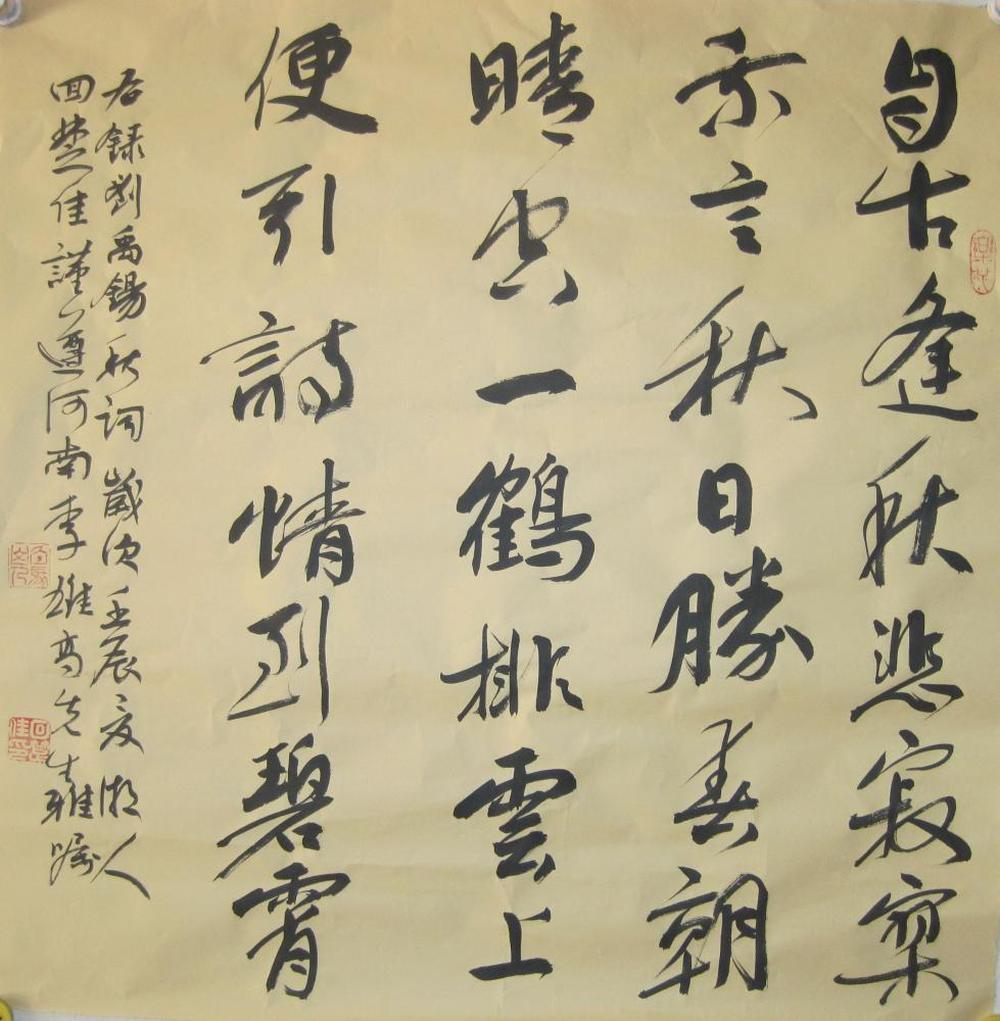 自古逢秋悲寂寥
我言秋日勝春朝
晴空一鶴排雲上
便引詩情到碧霄
右録劉禹錫秋詞歲次壬辰夏湘人
回楚佳謹遵河南李雄高先生雅嘱